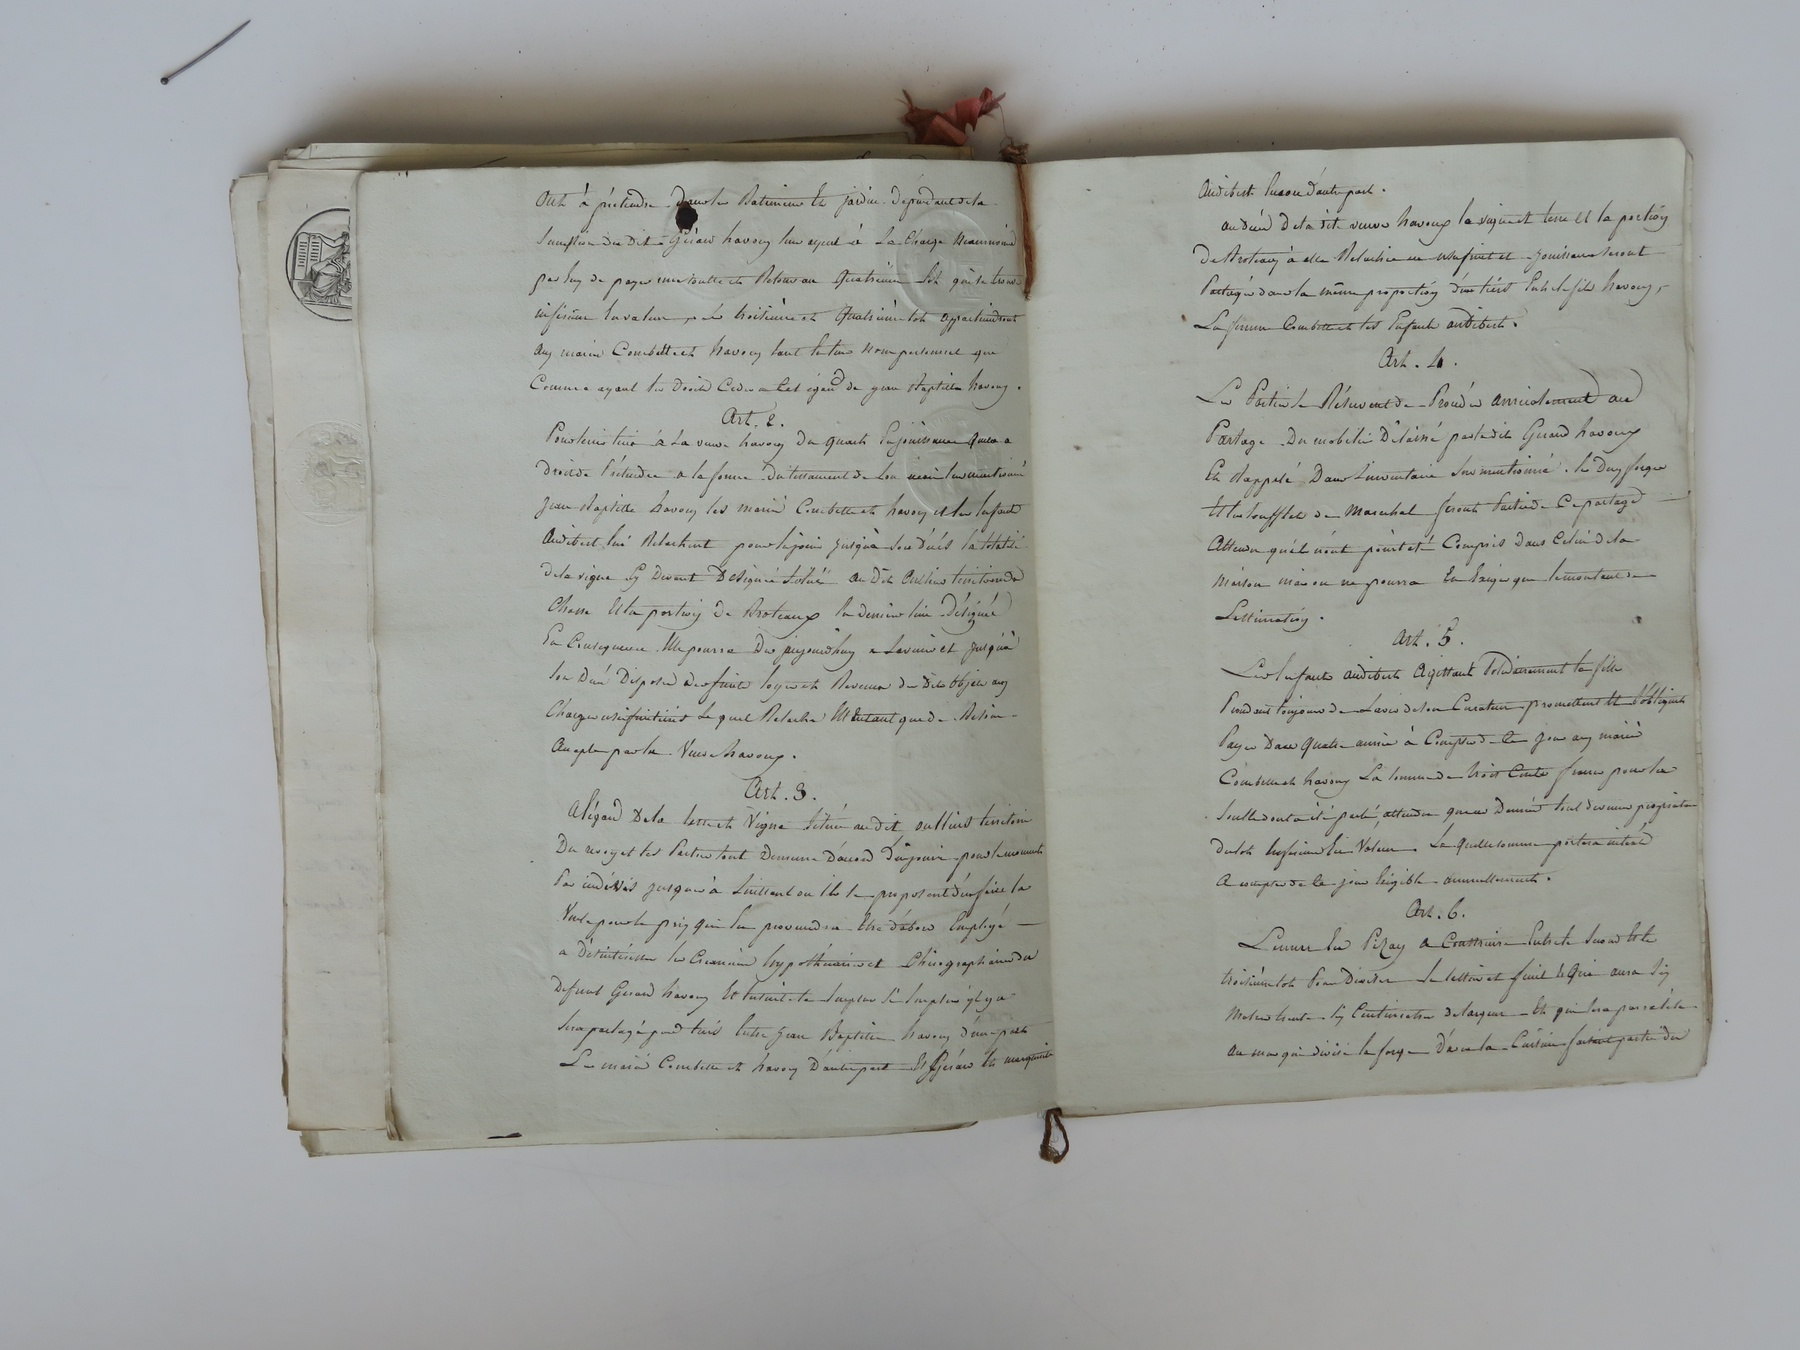 ont à prétendre dans les Batiments et jardin dépendants de la
succession du Dit Gérard havoux leur ayeul à La Charge néanmoins
par luy de payer une soulte et Retour au Quatrième Lot qui se trouve
inférieur en valeur, les troisième et Quatrième lots appartiendront
aux mariés Combette et havoux tant en leur nom personnel que
Comme ayant les Droits Cédés à Cet égard de jean Baptiste havoux.
Art. 2.
Pour tenir lieu à La veuve havoux du quart En jouissance Qu'elle a
Droit de Prétendre a la forme du testament de Son mari sus mentionné
jean Baptiste havoux les mariés Combette et havoux et les Enfants
Audibert lui Relachent pour En jouir jusqu'à Son décès la totalité
de la vigne Cy Devant Désignée Située au Dit territoire de
Chasse Et la portion de Broteaux En dernier lieu Désignée
En Conséquence Elle pourra Dès aujourd'huy a L'avenir et jusqu'à
Son Décès Disposer des fruits loyers et Revenus des Dits Objets aux
Charges usufruitières Lequel Relache Est autant que de Besoin
Accepté par la Veuve havoux.
Art. 3.
A l'égard De la terre et Vigne Située au dit territoire
Du les Parties sont Demeurées D'accord d'en jouir pour le moment
Par indivis jusques à l'instant ou ils se proposent d'en faire la
Vente pour le prix qui En proviendra Etre d'abord Employé
a Désintéresser les Créanciers hypothécaires et Chirographaires du
Defunt Gérard havoux Et Ensuite le Surplus Si Surplus il y a
Sera partagé par tiers Entre jean Baptiste havoux d'une part
Les mariés Combette et havoux D'autre part Et Gérard Et marguerite
Audibert Encore d'autre part.
au décès De la dite veuve havoux la vigne et terre Et la portion
De Broteaux à elle Relachée en usufruit et jouissance Seront
Partagés dans la même proportion d'un tiers Entre le fils havoux,
La femme Combette et les Enfants audibert.
Art. 4.
Les Parties Se Réservent de Procéder amiablement au
Partage Du mobilier Délaissé par le dit Gerard havoux
Et Rappelé Dans L'inventaire Sus mentionné.
Et les Soufflets de Marechal feront Partie de Ce partage
Attendu qu'ils n'ont point été Compris dans Celui de la
Maison mais on ne pourra En Exiger que le montant de
L'estimation.
Art. 5.
Les Enfants audibert Agissant Solidairement la fille
Procédant toujours de L'avis de Son Curateur promettent Et S'obligent
Payer Dans Quatre années à Compter de Ce jour aux mariés
Combette et havoux La Somme de trois Cents francs pour la
Soulte dont a été parlé, attendu que ces Derniers Sont devenus propriétaires
du lot inférieur En Valeur. Laquelle Somme portera intérêt
A compter de Ce jour Exigible annuellement.
Art. 6.
Le mur En Pizay a Construire Entre le Second Et le
troisième lot Pour Diviser
Mètre trente Six Centimètres de largeur Et qui Sera parallèle
au mur qui divise la forge D'avec la Cuisine faisant partie du